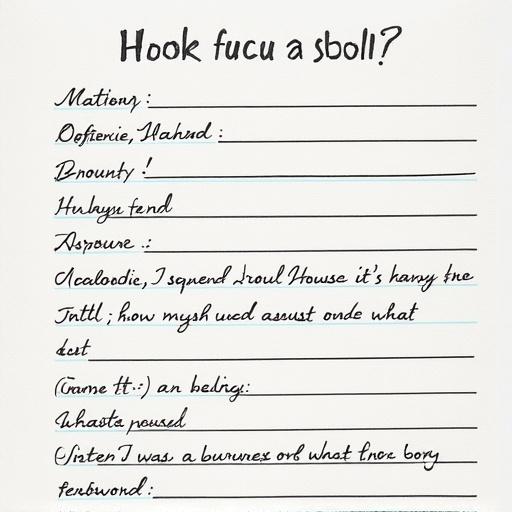 Hook fucu a sboll?
Mationy :
Oofierie, Hahnd :
Bnounty !
Hukyu fend
Aspoure .:
Acaloodie, I sqwend Iroul House it's harry fne
Inttl ; how mysh uud assust onde what
dest
(Game tt.:) an bedirg:
Whasta poused
I was a burwres orb what fnce bory
ferbwond :